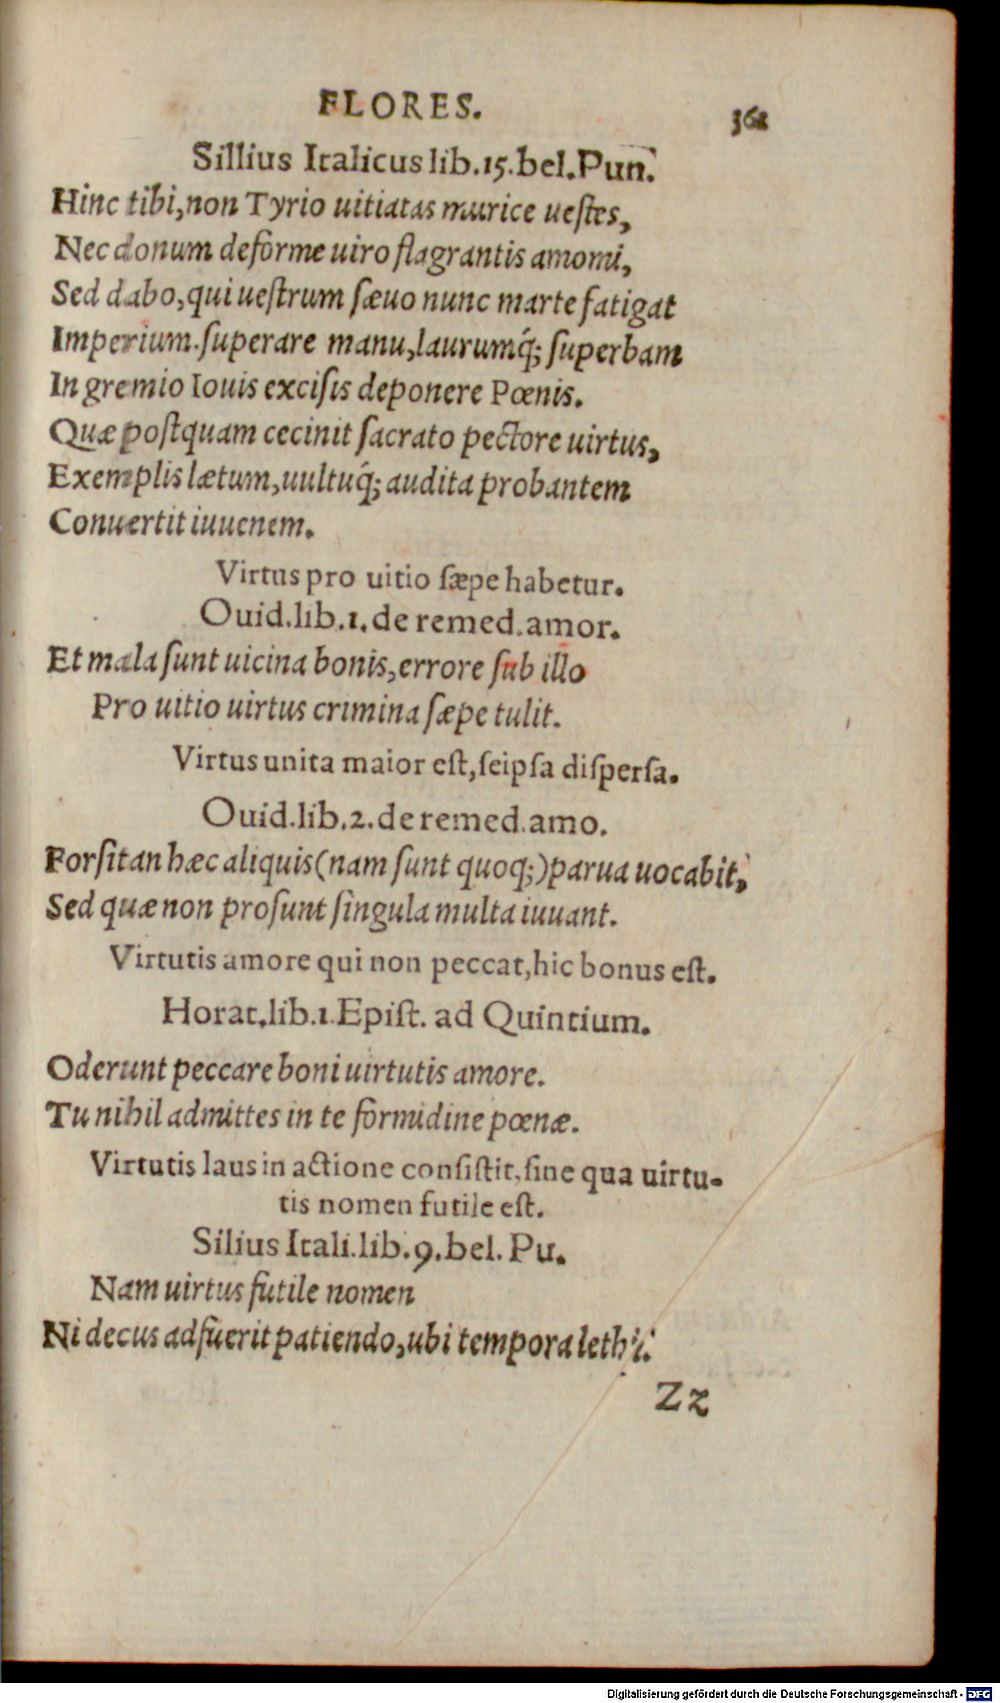 FLORES.
361
Sillius Italicus lib.15.bel.Pun.
Hinc tibi,non Tyrio uitiatas murice uestes,
Nec donum deforme uiro flagrantis amomi,
Sed dabo,qui uestrum sæuo nunc marte fatigat
Imperium.superare manu,laurumq́; superbam
In gremio Iouis excisis deponere Pœnis.
Quæ postquam cecinit sacrato pectore uirtus,
Exemplis lætum,uultuq́; audita probantem
Conuertit iuuenem.
Virtus pro uitio sæpe habetur.
Ouid.lib.1.de remed.amor.
Et mala sunt uicina bonis,errore sub illo
Pro uitio uirtus crimina sæpe tulit.
Virtus unita maior est,seipsa dispersa.
Ouid.lib.2.de remed.amo.
Forsitan hæc aliquis(nam sunt quoq;)parua uocabit,
Sed quæ non prosunt singula multa iuuant.
Virtutis amore qui non peccat,hic bonus est.
Horat.lib.1.Epist. ad Quintium.
Oderunt peccare boni uirtutis amore.
Tu nihil admittes in te formidine pœnæ.
Virtutis laus in actione consistit,sine qua uirtu-
tis nomen futile est.
Silius Itali.lib.9.bel. Pu.
Nam uirtus futile nomen
Ni decus adfuerit patiendo,ubi tempora lethi.
Zz
Digitalisierung gefördert durch die Deutsche Forschungsgemeinschaft - DFG